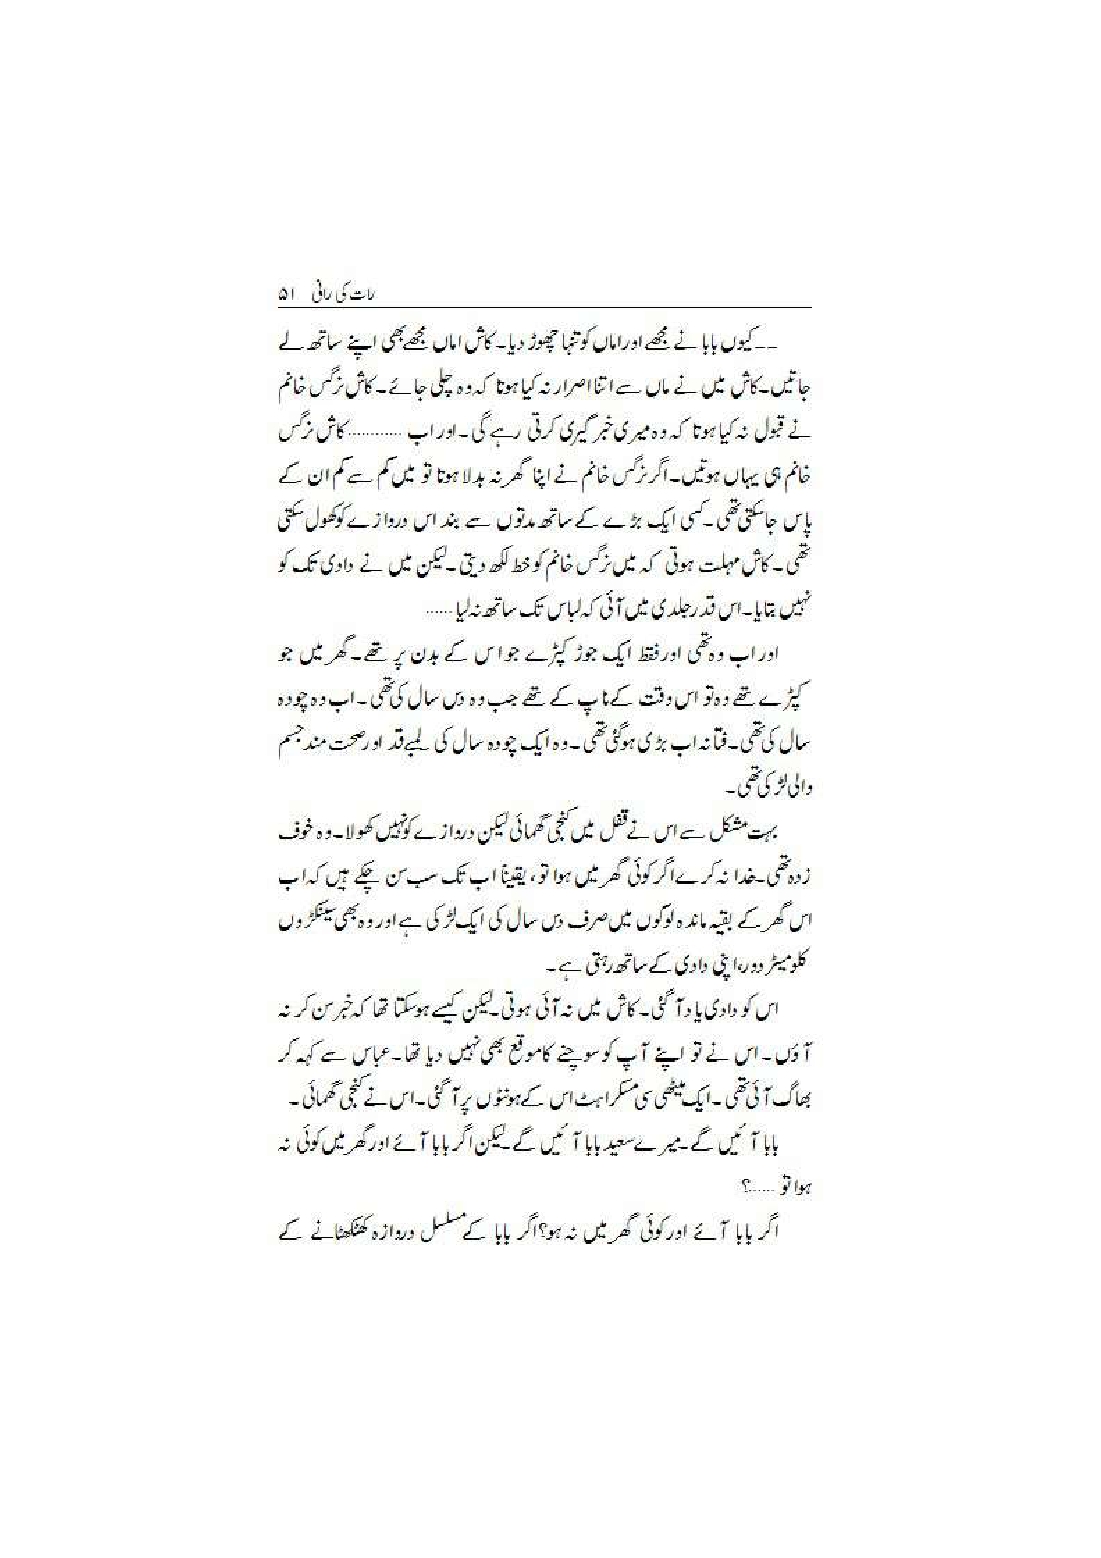 رات کی رانی ۵۱
۔۔کیوں بابا نے مجھے اور اماں کو تنہا چھوڑ دیا۔ کاش اماں مجھے بھی اپنے ساتھ لے
جاتیں۔ کاش میں نے ماں سے اتنا اصرار نہ کیا ہوتا کہ وہ چلی جائے۔ کاش نرگس خانم
نے قبول نہ کیا ہوتا کہ وہ میری خبر گیری کرتی رہے گی۔ اور اب ............ کاش نرگس
خانم ہی یہاں ہوتیں۔ اگر نرگس خانم نے اپنا گھر نہ بدلا ہوتا تو میں کم سے کم ان کے
پاس جا سکتی تھی۔ کسی ایک بڑے کے ساتھ مدتوں سے بند اس دروازے کو کھول سکتی
تھی۔ کاش مہلت ہوتی کہ میں نرگس خانم کو خط لکھ دیتی۔ لیکن میں نے دادی تک کو
نہیں بتایا۔ اس قدر جلدی میں آئی کہ لباس تک ساتھ نہ لیا ......
اور اب وہ تھی اور فقط ایک جوڑ کپڑے جو اس کے بدن پر تھے۔ گھر میں جو
کپڑے تھے وہ تو اس وقت کے ناپ کے تھے جب وہ دس سال کی تھی۔ اب وہ چودہ
سال کی تھی۔ فتانہ اب بڑی ہو گئی تھی۔ وہ ایک چودہ سال کی لمبے قد اور صحت مند جسم
والی لڑکی تھی۔
بہت مشکل سے اس نے قفل میں کنجی گھمائی لیکن دروازے کو نہیں کھولا۔ وہ خوف
زدہ تھی۔ خدا نہ کرے اگر کوئی گھر میں ہوا تو، یقیناً اب تک سب سن چکے ہیں کہ اب
اس گھر کے بقیہ ماندہ لوگوں میں صرف دس سال کی ایک لڑکی ہے اور وہ بھی سینکڑوں
کلومیٹر دور، اپنی دادی کے ساتھ رہتی ہے۔
اس کو دادی یاد آ گئی۔ کاش میں نہ آئی ہوتی۔ لیکن کیسے ہو سکتا تھا کہ خبر سن کر نہ
آؤں۔ اس نے تو اپنے آپ کو سوچنے کا موقع بھی نہیں دیا تھا۔ عباس سے کہہ کر
بھاگ آئی تھی۔ ایک میٹھی سی مسکراہٹ اس کے ہونٹوں پر آ گئی۔ اس نے کنجی گھمائی۔
بابا آئیں گے۔ میرے سعید بابا آئیں گے۔ لیکن اگر بابا آئے اور گھر میں کوئی نہ
ہوا تو ......؟
اگر بابا آئے اور کوئی گھر میں نہ ہو؟ اگر بابا کے مسلسل دروازہ کھٹکھٹانے کے